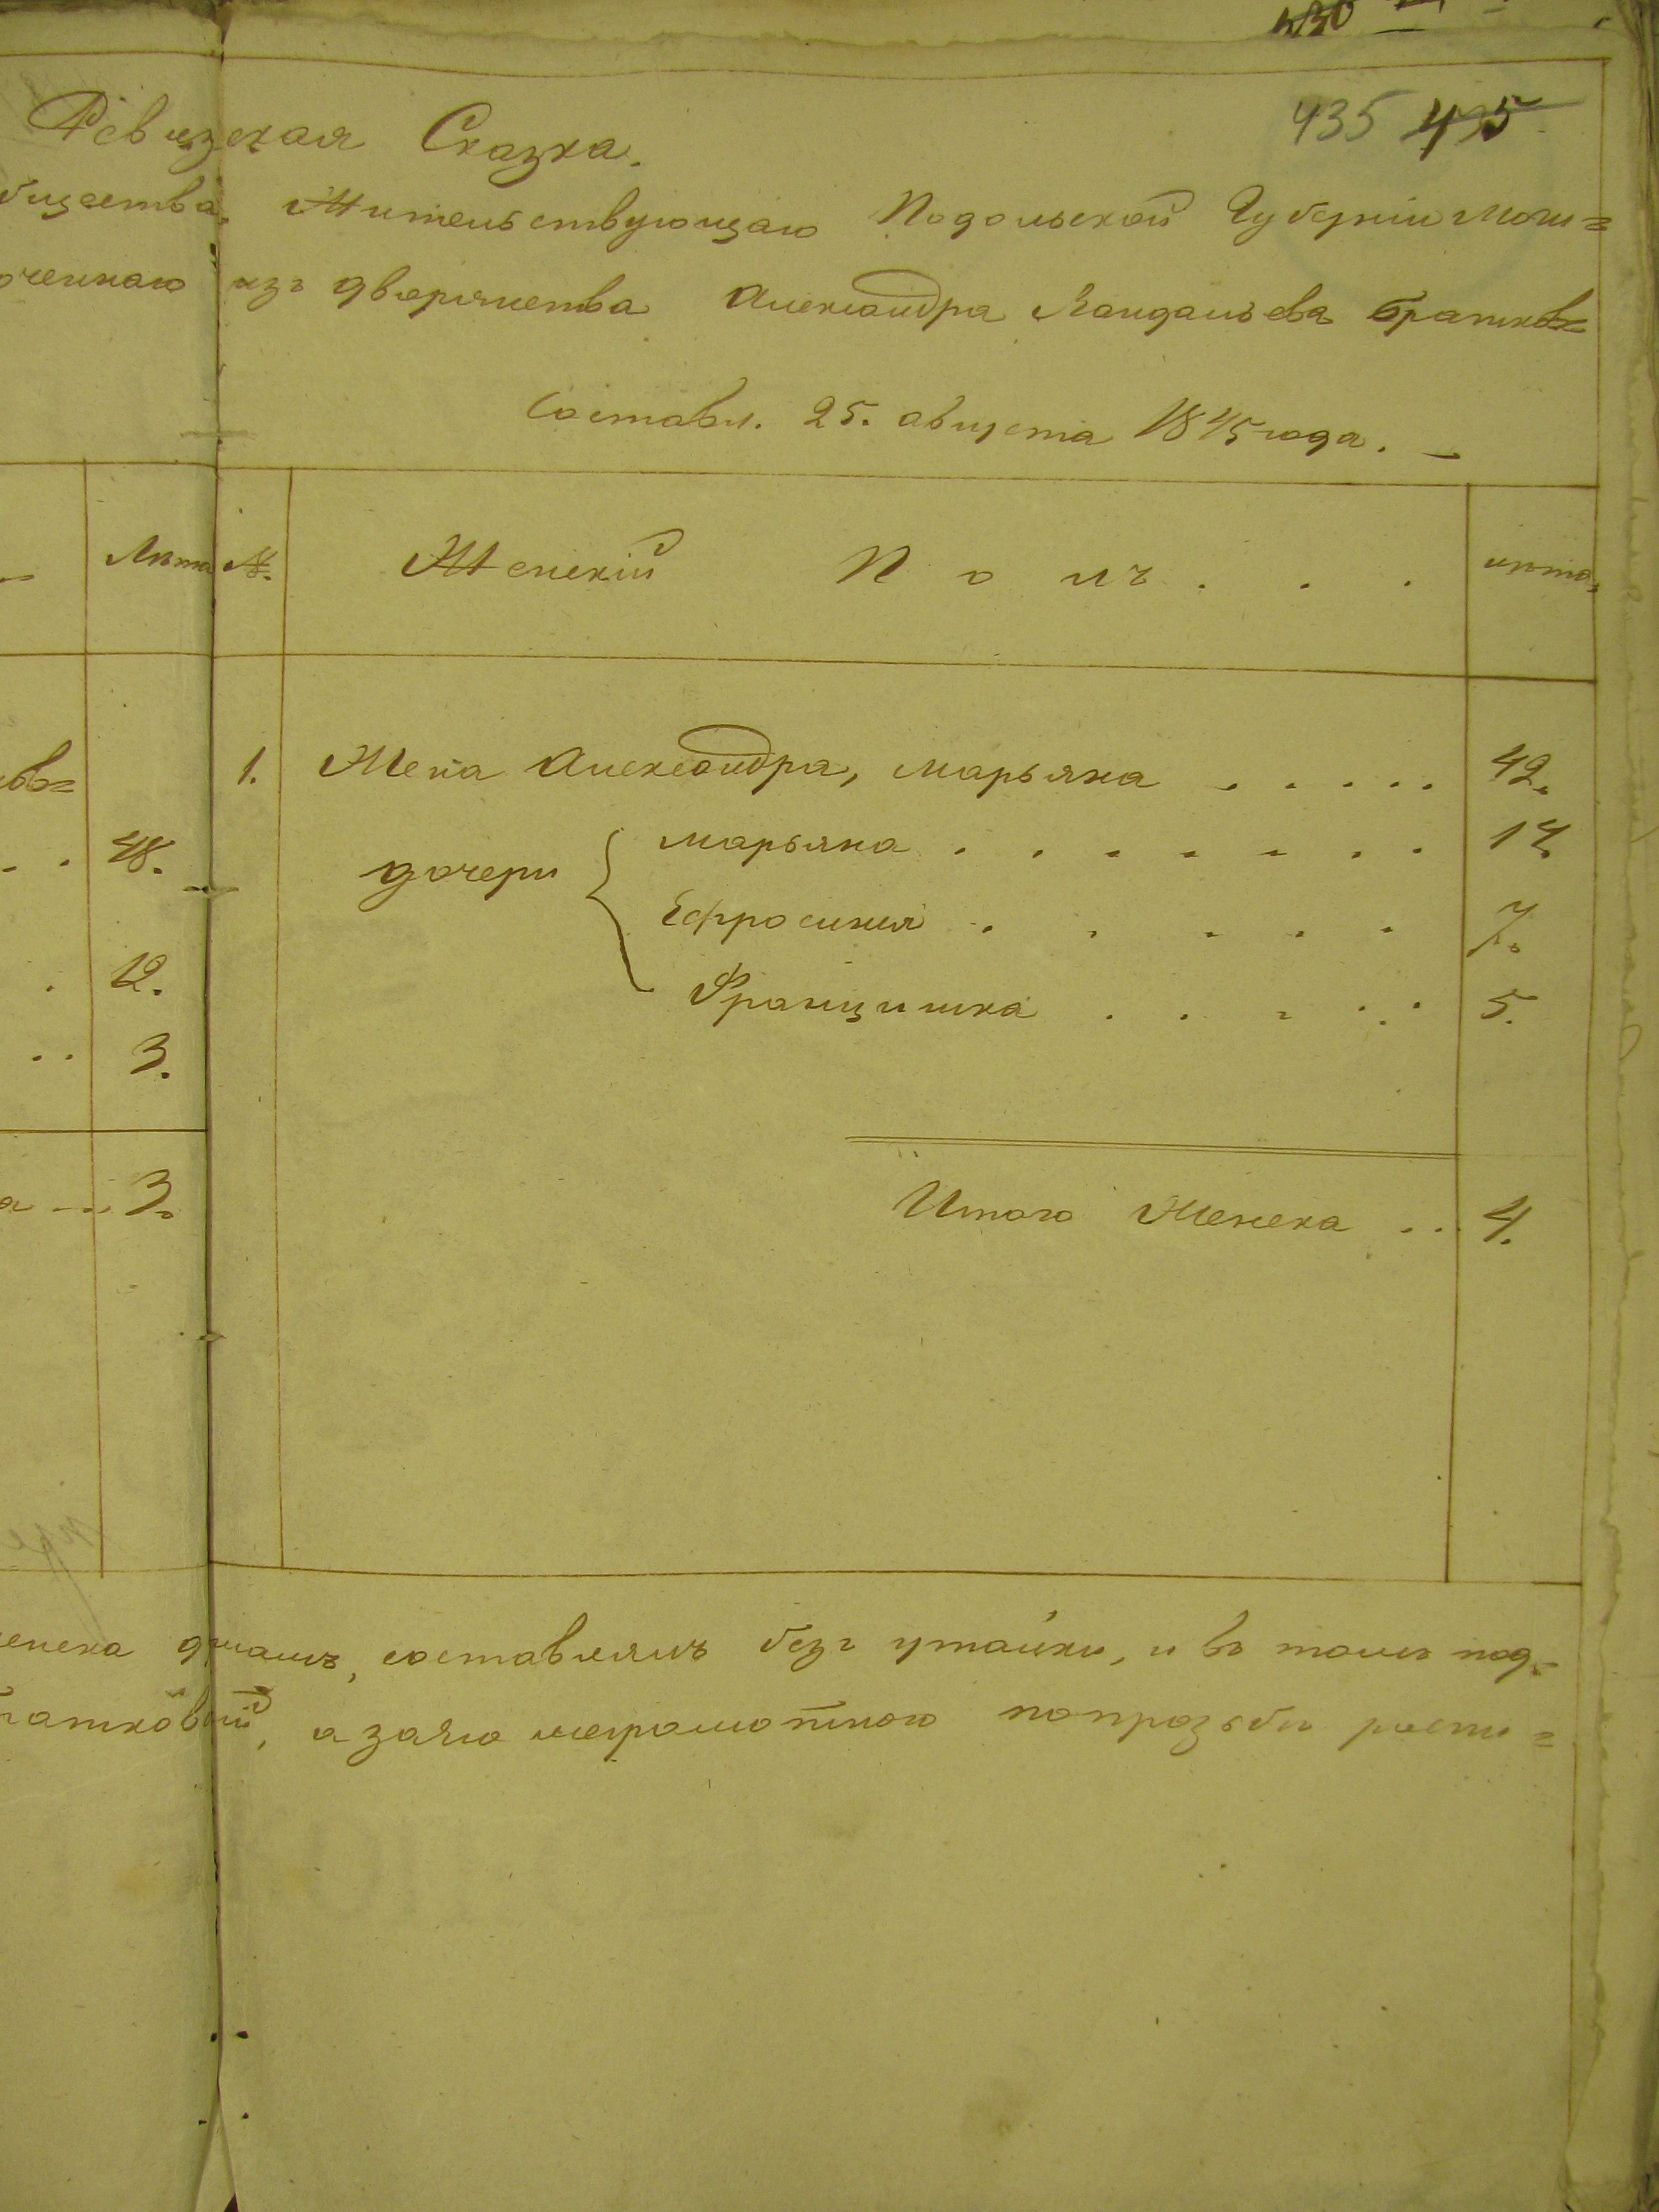 435 495
Ревизская Сказка.
бщества, Жительствующаго Подольской Губерніи Моги=
юченнаго изъ дворянства Александра Братков=
Составл. 25. августа 1845 года.
Лѣта №. Женскій Полъ . . . лѣта,
1. Жена Александра, Марьяна . . . . . 42.
48. дочери Марьяна . . . . . . . 14.
Ефросинія . . . . . 7.
12. Францишка . . . . . 5.
3.
3. Итого Женска . . 4.
женска душамъ, составлялъ безъ утайки, и въ томъ под=
ратковскій, а за его неграмотного по прозьбы роспи=